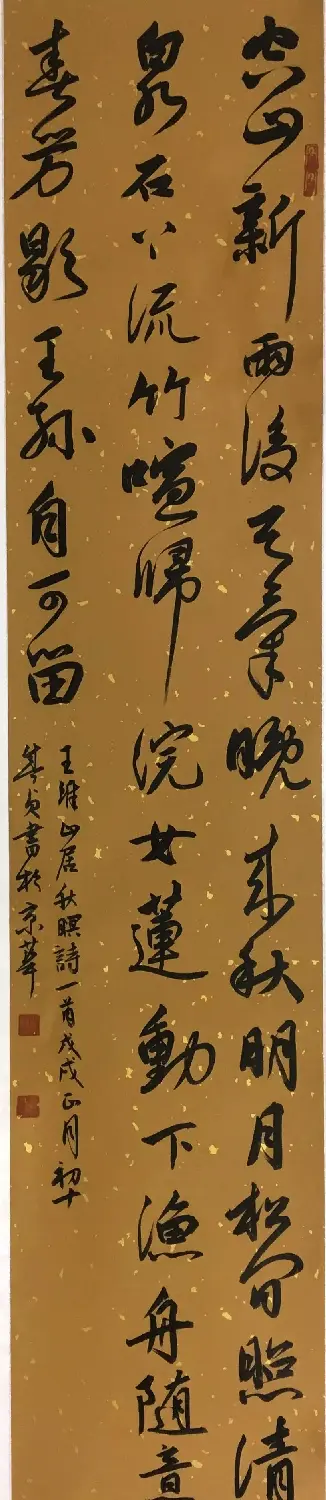 空山新雨後天氣晚来秋明月松间照清
泉石上流竹喧歸浣女蓮動下漁舟随意
春芳歇王孫自可留
王維山居秋暝詩一首戊戌正月初十
貞書於京華